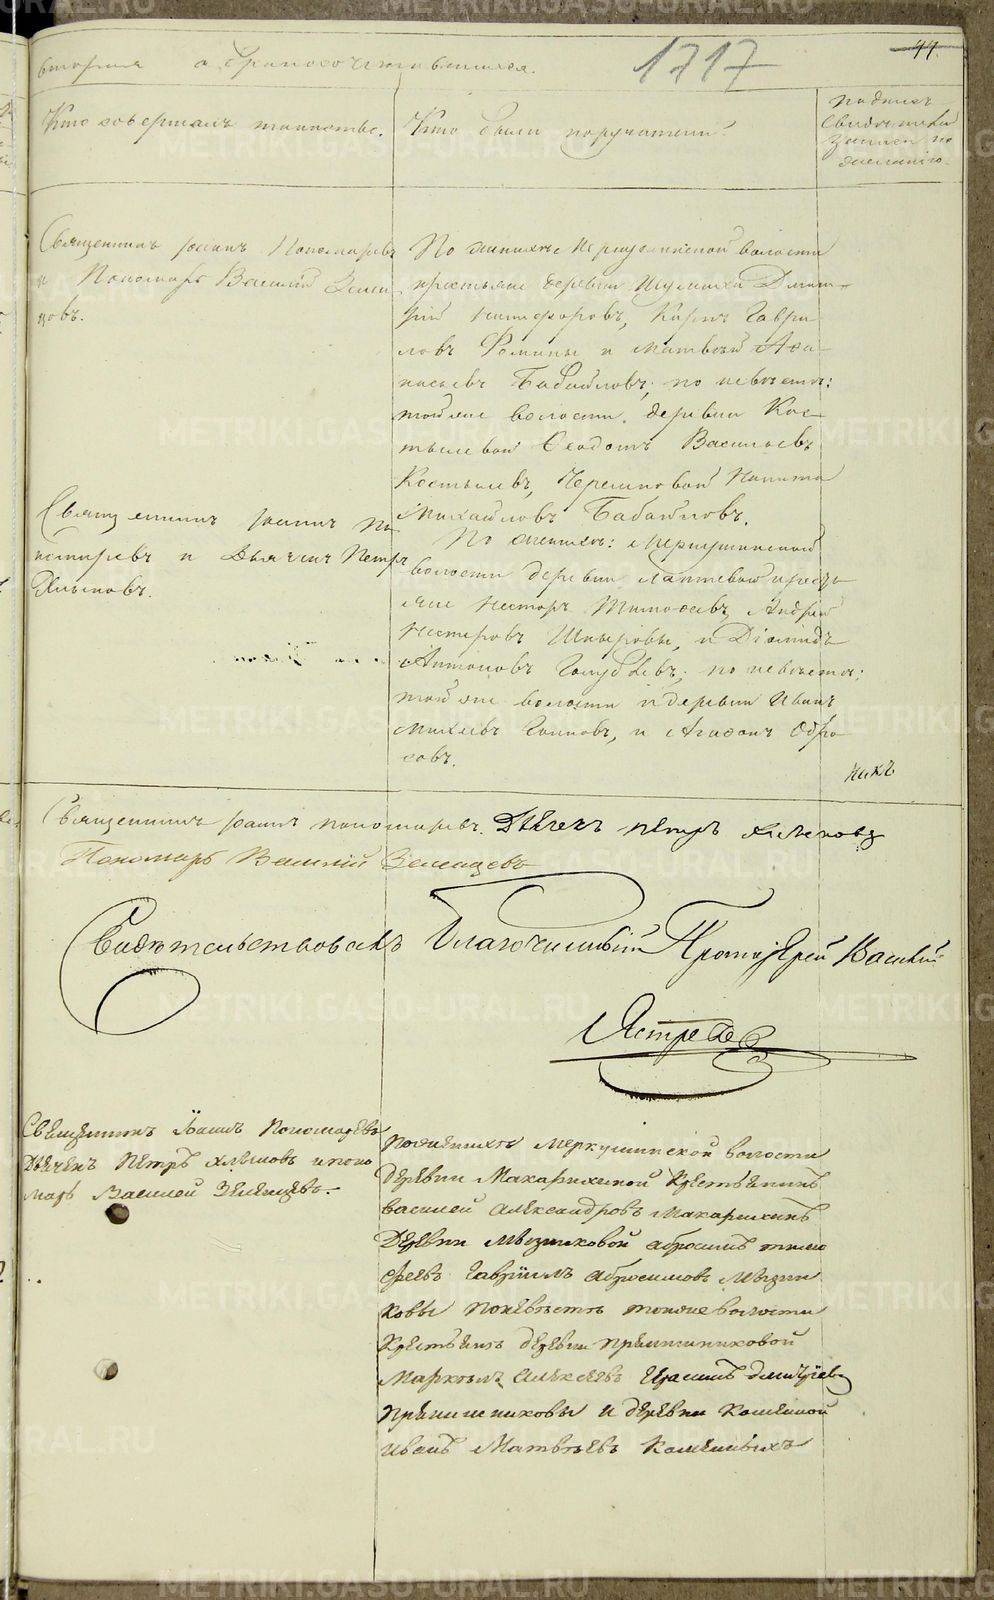 вторыя о бракосочетавшихся.
1717
44
Кто совершалъ таинство.
Кто были поручители.
подпись
свидѣтелей
записи по
желанію.
Священникъ Іоаннъ Пономаревъ
и Пономарь Василій Зелен
цовъ.
По женихѣ Меркушинской волости
крестьяне деревни Дмит-
рій Никифоровъ, Киръ Гаври
ловъ Фомины и Матвѣй Афа-
насьевъ Бабайловъ; по невѣстѣ:
той же волости деревни Кос-
тылевой Феодотъ Васильевъ
Костылевъ, Черемновой Никита
Михайловъ Бабайловъ.
Священникъ Іоаннъ По
номаревъ и Дьячекъ Петръ
Хлыновъ.
По женихѣ: Меркушинской
волости деревни Лаптевой кресть
яне Нестеръ Тимофеевъ, Андрей
Нестеровъ Шныровы, и Діомидъ
Антоновъ Голубцевъ; по невѣстѣ;
той же волости и деревни Иванъ
Михѣевъ, и Агафонъ Абро
совъ.
никъ
Священникъ Іоаннъ Пономаревъ. Дьячекъ Петръ Хлыновъ
Пономарь Василій Зеленцовъ
Свидѣтельствовалъ Благочинный Протоіерей Василій
Ястребов
Священникъ Іоаннъ Пономаревъ
Дьячекъ Петръ Хлыновъ и поно
марь Василей Зеленцовъ.
По женихѣ Меркушинской волости
деревни Макарихиной крестьянинъ
Василей Александровъ Макарихинъ
деревни Мызниковой Абросимъ Тимо
феевъ Гавріилъ Абросимовъ Мызни
ковы по невѣстѣ той же волости
крестьянъ деревни Прянишниковой
Маркелъ Алексѣевъ Герасимъ Дмитріевъ
Прянишниковы и деревни
Иванъ Матвѣевъ
METRIKI.GASO-URAL.RU